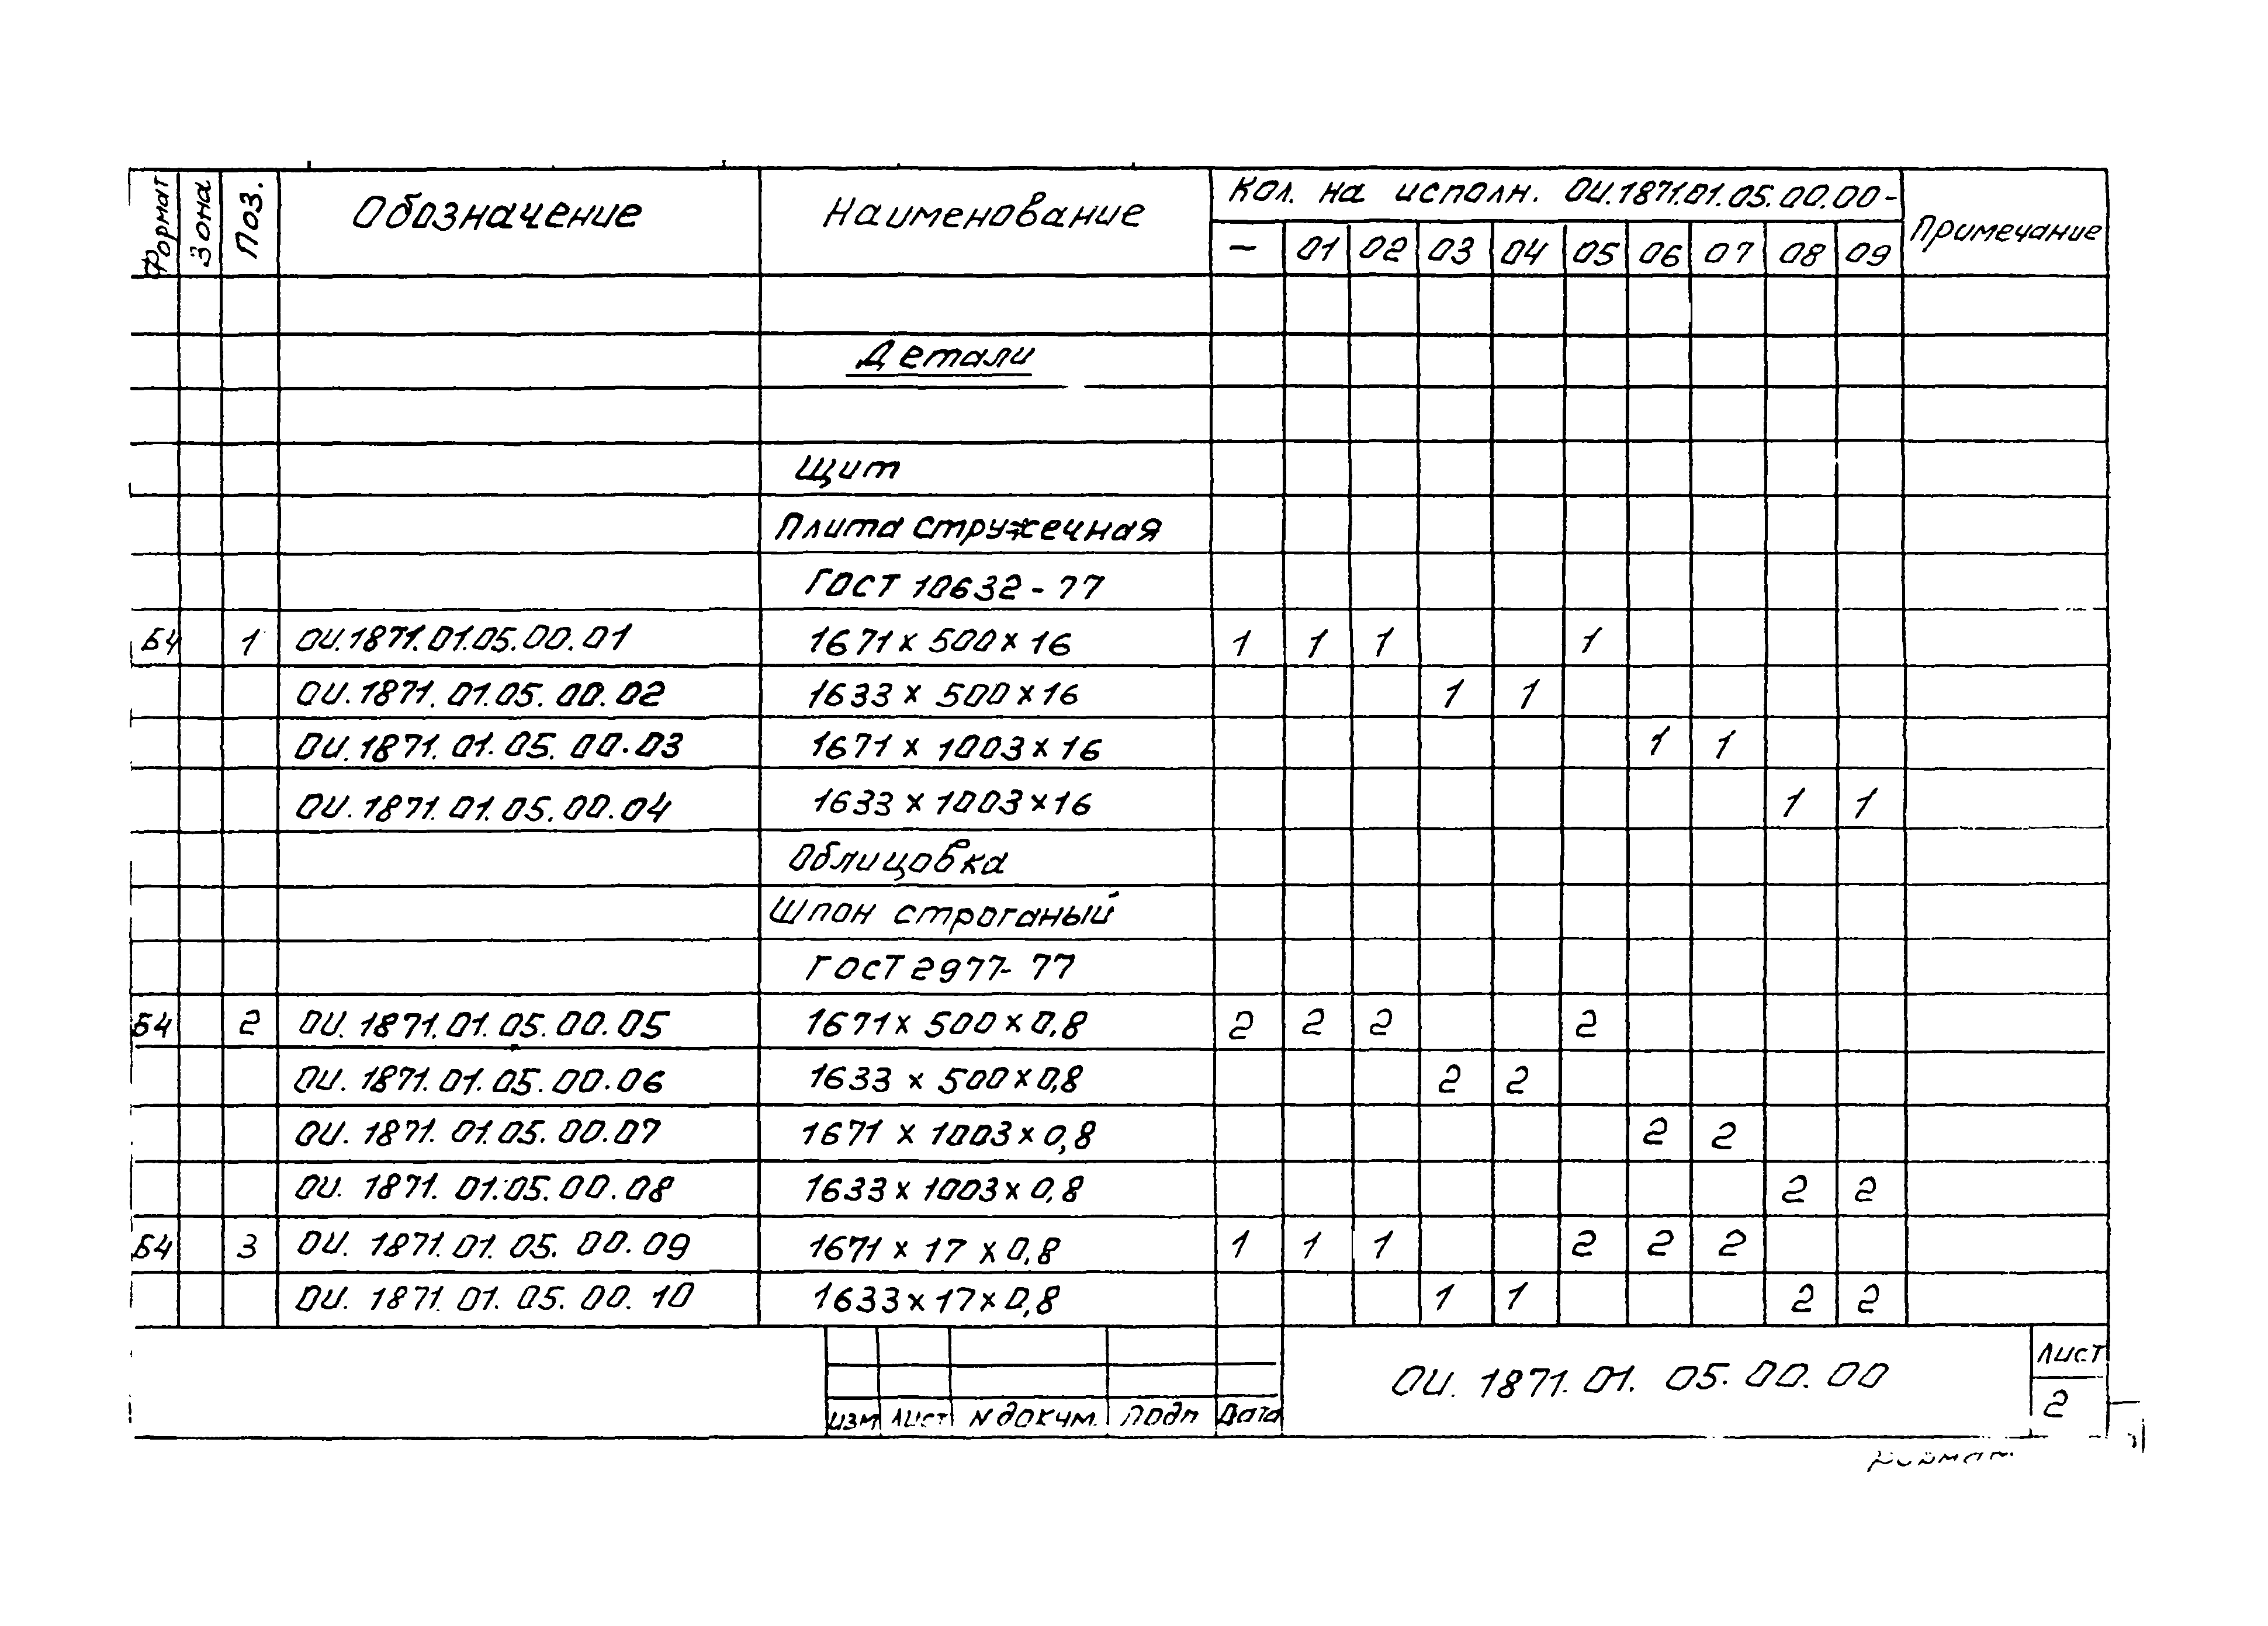 Формат Зона Поз. Обозначение Наименование Кол. на исполн. ОИ.1871.01.05.00.00- Примечание
— 01 02 03 04 05 06 07 08 09
Детали
Щит
Плита стружечная
ГОСТ 10632-77
Б4 1 ОИ.1871.01.05.00.01 1671 x 500 x 16 1 1 1 1
ОИ.1871.01.05.00.02 1633 x 500 x 16 1 1
ОИ.1871.01.05.00.03 1671 x 1003 x 16 1 1
ОИ.1871.01.05.00.04 1633 x 1003 x 16 1 1
Облицовка
Шпон строганый
ГОСТ 2977-77
Б4 2 ОИ.1871.01.05.00.05 1671 x 500 x 0,8 2 2 2 2
ОИ.1871.01.05.00.06 1633 x 500 x 0,8 2 2
ОИ.1871.01.05.00.07 1671 x 1003 x 0,8 2 2
ОИ.1871.01.05.00.08 1633 x 1003 x 0,8 2 2
Б4 3 ОИ.1871.01.05.00.09 1671 x 17 x 0,8 1 1 1 2 2 2
ОИ.1871.01.05.00.10 1633 x 17 x 0,8 1 1 2 2
Изм Лист N докум. Подп Дата ОИ.1871.01.05.00.00 Лист
2